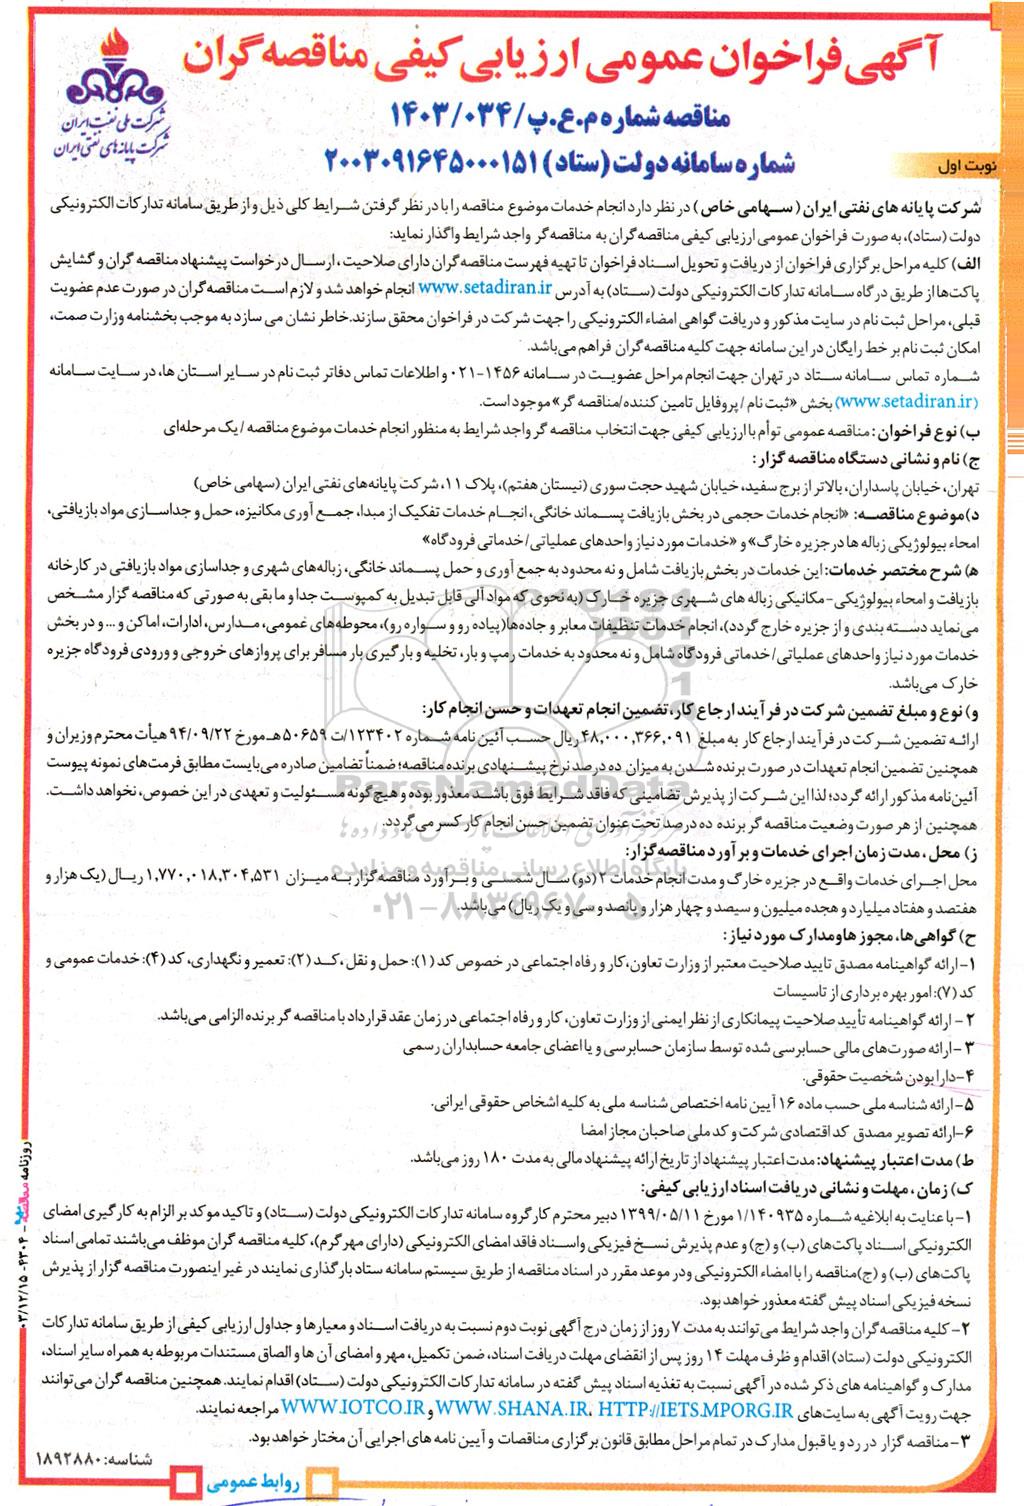 آگهی فراخوان عمومی ارزیابی کیفی مناقصه گران
شرکت ملی نفت ایران
شرکت پایانه های نفتی ایران
مناقصه شماره م.ع.پ/۱۴۰۳/۰۳۴
شماره سامانه دولت (ستاد) ۲۰۰۳۰۹۱۶۴۵۰۰۰۱۵۱
نوبت اول
شرکت پایانه های نفتی ایران (سهامی خاص) در نظر دارد انجام خدمات موضوع مناقصه را با در نظر گرفتن شرایط کلی ذیل و از طریق سامانه تدارکات الکترونیکی
دولت (ستاد)، به صورت فراخوان عمومی ارزیابی کیفی مناقصه گران به مناقصه گر واجد شرایط واگذار نماید:
الف) کلیه مراحل برگزاری فراخوان از دریافت و تحویل اسناد فراخوان تا تهیه فهرست مناقصه گران دارای صلاحیت، ارسال درخواست پیشنهاد مناقصه گران و گشایش
پاکت‌ها از طریق درگاه سامانه تدارکات الکترونیکی دولت (ستاد) به آدرس www.setadiran.ir انجام خواهد شد و لازم است مناقصه گران در صورت عدم عضویت
قبلی، مراحل ثبت نام در سایت مذکور و دریافت گواهی امضاء الکترونیکی را جهت شرکت در فراخوان محقق سازند. خاطر نشان می سازد به موجب بخشنامه وزارت صمت،
امکان ثبت نام بر خط رایگان در این سامانه جهت کلیه مناقصه گران فراهم می‌باشد.
شماره تماس سامانه ستاد در تهران جهت انجام مراحل عضویت در سامانه ۱۴۵۶-۰۲۱ و اطلاعات تماس دفاتر ثبت نام در سایر استان ها، در سایت سامانه
(www.setadiran.ir) بخش «ثبت نام / پروفایل تامین کننده/مناقصه گر» موجود است.
ب) نوع فراخوان: مناقصه عمومی توأم با ارزیابی کیفی جهت انتخاب مناقصه گر واجد شرایط به منظور انجام خدمات موضوع مناقصه / یک مرحله‌ای
ج) نام و نشانی دستگاه مناقصه گزار:
تهران، خیابان پاسداران، بالاتر از برج سفید، خیابان شهید حجت سوری (نیستان هفتم)، پلاک ۱۱، شرکت پایانه‌های نفتی ایران (سهامی خاص)
د) موضوع مناقصه: «انجام خدمات حجمی در بخش بازیافت پسماند خانگی، انجام خدمات تفکیک از مبدا، جمع آوری مکانیزه، حمل و جداسازی مواد بازیافتی،
امحاء بیولوژیکی زباله ها در جزیره خارگ» و «خدمات مورد نیاز واحدهای عملیاتی/خدماتی فرودگاه»
ه) شرح مختصر خدمات: این خدمات در بخش بازیافت شامل و نه محدود به جمع آوری و حمل پسماند خانگی، زباله‌های شهری و جداسازی مواد بازیافتی در کارخانه
بازیافت و امحاء بیولوژیکی-مکانیکی زباله های شهری جزیره خارک (به نحوی که مواد آلی قابل تبدیل به کمپوست جدا و ما بقی به صورتی که مناقصه گزار مشخص
می‌نماید دسته بندی و از جزیره خارج گردد)، انجام خدمات تنظیفات معابر و جاده‌ها(پیاده رو و سواره رو)، محوطه‌های عمومی، مدارس، ادارات، اماکن و ... و در بخش
خدمات مورد نیاز واحدهای عملیاتی/خدماتی فرودگاه شامل و نه محدود به خدمات رمپ و بار، تخلیه و بارگیری بار مسافر برای پروازهای خروجی و ورودی فرودگاه جزیره
خارک می‌باشد.
و) نوع و مبلغ تضمین شرکت در فرآیند ارجاع کار، تضمین انجام تعهدات و حسن انجام کار:
ارائه تضمین شرکت در فرآیند ارجاع کار به مبلغ ۴۸,۰۰۰,۳۶۶,۰۹۱ ریال حسب آئین نامه شماره ۱۲۳۴۰۲/ت ۵۰۶۵۹ هـ مورخ ۹۴/۰۹/۲۲ هیأت محترم وزیران و
همچنین تضمین انجام تعهدات در صورت برنده شدن به میزان ده درصد نرخ پیشنهادی برنده مناقصه؛ ضمناً تضامین صادره می‌بایست مطابق فرمت‌های نمونه پیوست
آئین‌نامه مذکور ارائه گردد؛ لذا این شرکت از پذیرش تضامینی که فاقد شرایط فوق باشد معذور بوده و هیچ گونه مسئولیت و تعهدی در این خصوص، نخواهد داشت.
همچنین از هر صورت وضعیت مناقصه گر برنده ده درصد تحت عنوان تضمین حسن انجام کار کسر می گردد.
ParsNamadData
پایگاه اطلاع رسانی مناقصه و مزایده
۰۲۱-۸۸۳۴۹۶۷۰-۵
ز) محل، مدت زمان اجرای خدمات و برآورد مناقصه گزار:
محل اجرای خدمات واقع در جزیره خارگ و مدت انجام خدمات ۲ (دو) سال شمسی و برآورد مناقصه گزار به میزان ۱,۷۷۰,۰۱۸,۳۰۴,۵۳۱ ریال (یک هزار و
هفتصد و هفتاد میلیارد و هجده میلیون و سیصد و چهار هزار و پانصد و سی و یک ریال) می‌باشد.
ح) گواهی‌ها، مجوزها و مدارک مورد نیاز:
۱- ارائه گواهینامه مصدق تایید صلاحیت معتبر از وزارت تعاون، کار و رفاه اجتماعی در خصوص کد (۱): حمل و نقل، کد (۲): تعمیر و نگهداری، کد (۴): خدمات عمومی و
کد (۷): امور بهره برداری از تاسیسات
۲- ارائه گواهینامه تأیید صلاحیت پیمانکاری از نظر ایمنی از وزارت تعاون، کار و رفاه اجتماعی در زمان عقد قرارداد با مناقصه گر برنده الزامی می‌باشد.
۳- ارائه صورت‌های مالی حسابرسی شده توسط سازمان حسابرسی و یا اعضای جامعه حسابداران رسمی
۴- دارا بودن شخصیت حقوقی.
۵- ارائه شناسه ملی حسب ماده ۱۶ آیین نامه اختصاص شناسه ملی به کلیه اشخاص حقوقی ایرانی.
۶- ارائه تصویر مصدق کد اقتصادی شرکت و کد ملی صاحبان مجاز امضا
ط) مدت اعتبار پیشنهاد: مدت اعتبار پیشنهاد از تاریخ ارائه پیشنهاد مالی به مدت ۱۸۰ روز می‌باشد.
ک) زمان، مهلت و نشانی دریافت اسناد ارزیابی کیفی:
۱- با عنایت به ابلاغیه شماره ۱/۱۴۰۹۳۵ مورخ ۱۳۹۹/۰۵/۱۱ دبیر محترم کارگروه سامانه تدارکات الکترونیکی دولت (ستاد) و تاکید موکد بر الزام به کارگیری امضای
الکترونیکی اسناد پاکت‌های (ب) و (ج) و عدم پذیرش نسخ فیزیکی و اسناد فاقد امضای الکترونیکی (دارای مهر گرم)، کلیه مناقصه گران موظف می‌باشند تمامی اسناد
پاکت‌های (ب) و (ج) مناقصه را با امضاء الکترونیکی و در موعد مقرر در اسناد مناقصه از طریق سیستم سامانه ستاد بارگذاری نمایند در غیر اینصورت مناقصه گزار از پذیرش
نسخه فیزیکی اسناد پیش گفته معذور خواهد بود.
۲- کلیه مناقصه گران واجد شرایط می توانند به مدت ۷ روز از زمان درج آگهی نوبت دوم نسبت به دریافت اسناد و معیارها و جداول ارزیابی کیفی از طریق سامانه تدارکات
الکترونیکی دولت (ستاد) اقدام و ظرف مهلت ۱۴ روز پس از انقضای مهلت دریافت اسناد، ضمن تکمیل، مهر و امضای آن ها و الصاق مستندات مربوطه به همراه سایر اسناد،
مدارک و گواهینامه های ذکر شده در آگهی نسبت به تغذیه اسناد پیش گفته در سامانه تدارکات الکترونیکی دولت (ستاد) اقدام نمایند. همچنین مناقصه گران می‌توانند
جهت رویت آگهی به سایت‌های WWW.SHANA.IR، HTTP://IETS.MPORG.IR و WWW.IOTCO.IR مراجعه نمایند.
۳- مناقصه گزار در رد و یا قبول مدارک در تمام مراحل مطابق قانون برگزاری مناقصات و آیین نامه های اجرایی آن مختار خواهد بود.
شناسه: ۱۸۹۲۸۸۰
روابط عمومی
روزنامه مناقصه - ۴۳۰۴ - ۰۳/۱۲/۱۵